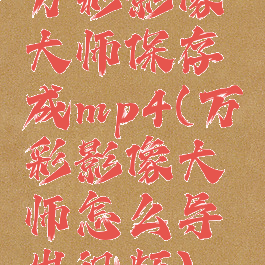 万彩影像
大师保存
成mp4(万
彩影像大
师怎么导
出视频)